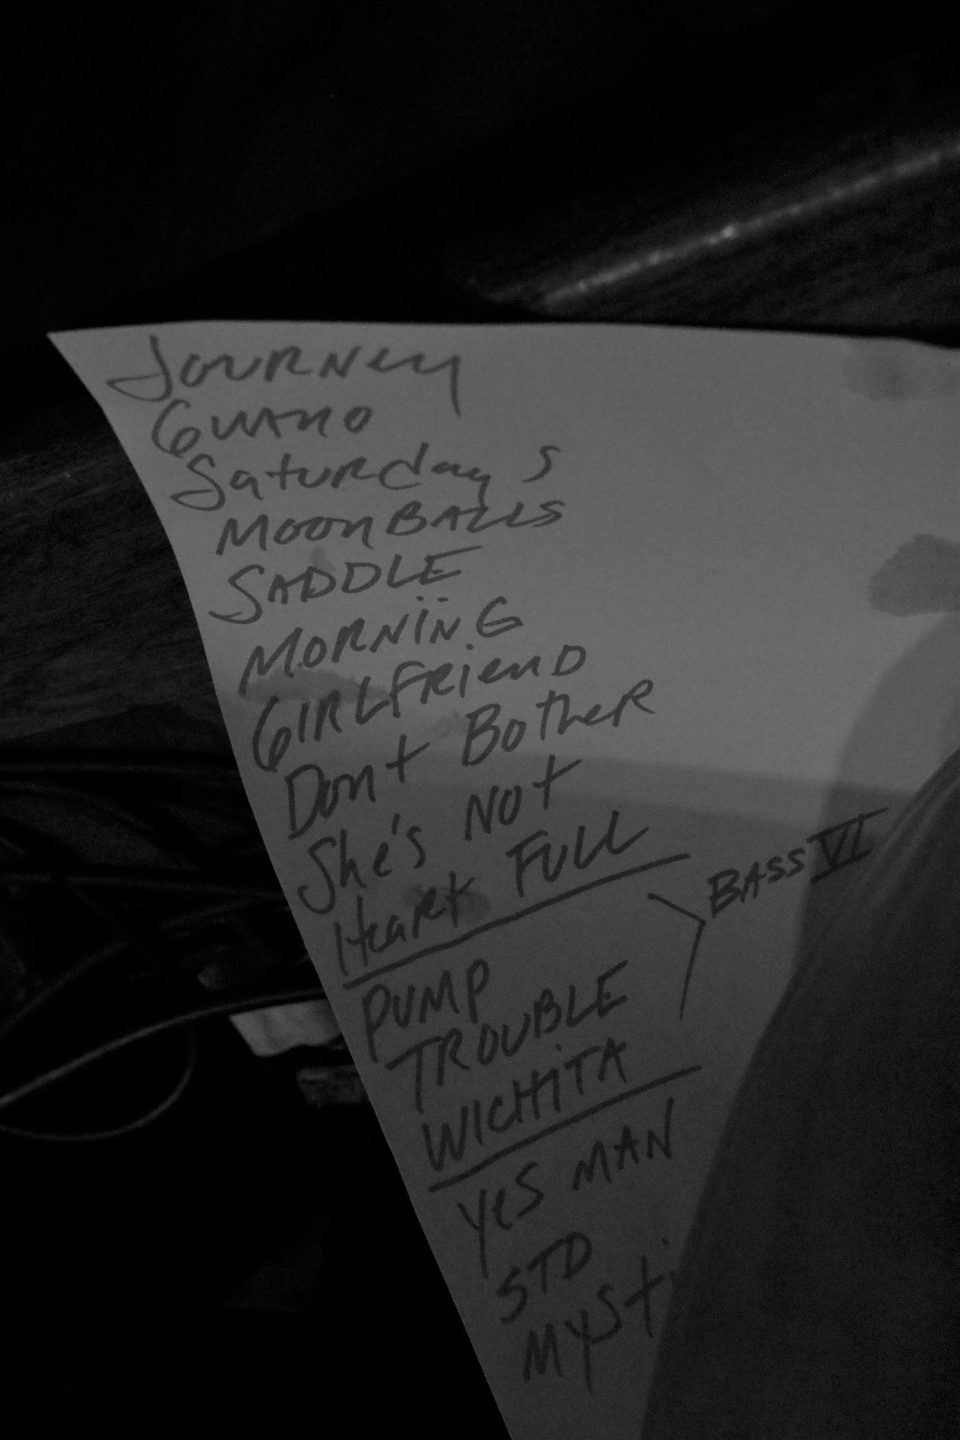 JOURNEY
GUANO
Saturday s
MOONBALLS
SADDLE
MORNING
GIRLFRIEND
Dont Bother
She's NOT
Heart FULL
BASS VI
PUMP
TROUBLE
WICHITA
YES MAN
STD
MYSti